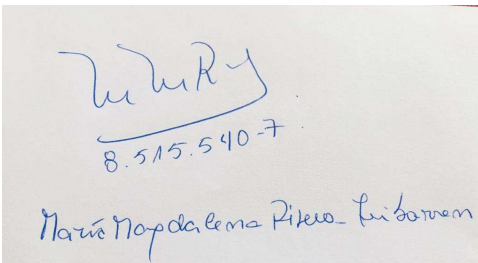 MMRY
8.515.540-7
María Magdalena Rivero Iribarren